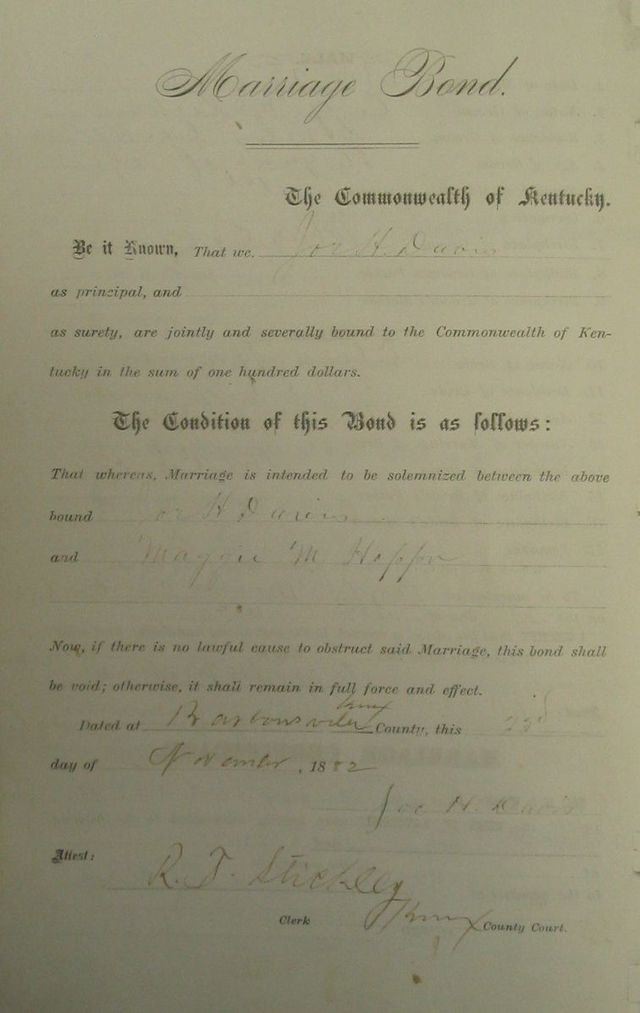 Marriage Bond.
The Commonwealth of Kentucky.
Be it Known, That we Joe H. Davis
as principal, and
as surety, are jointly and severally bound to the Commonwealth of Ken-
tucky in the sum of one hundred dollars.
The Condition of this Bond is as follows:
That whereas, Marriage is intended to be solemnized between the above
bound Joe H Davis
and Maggie M.
Now, if there is no lawful cause to obstruct said Marriage, this bond shall
be void; otherwise, it shall remain in full force and effect.
Knox
Dated at County, this 23d
day of , 1882
Joe H. Davis
Attest:
R. T. Stickley
Clerk Knox County Court.